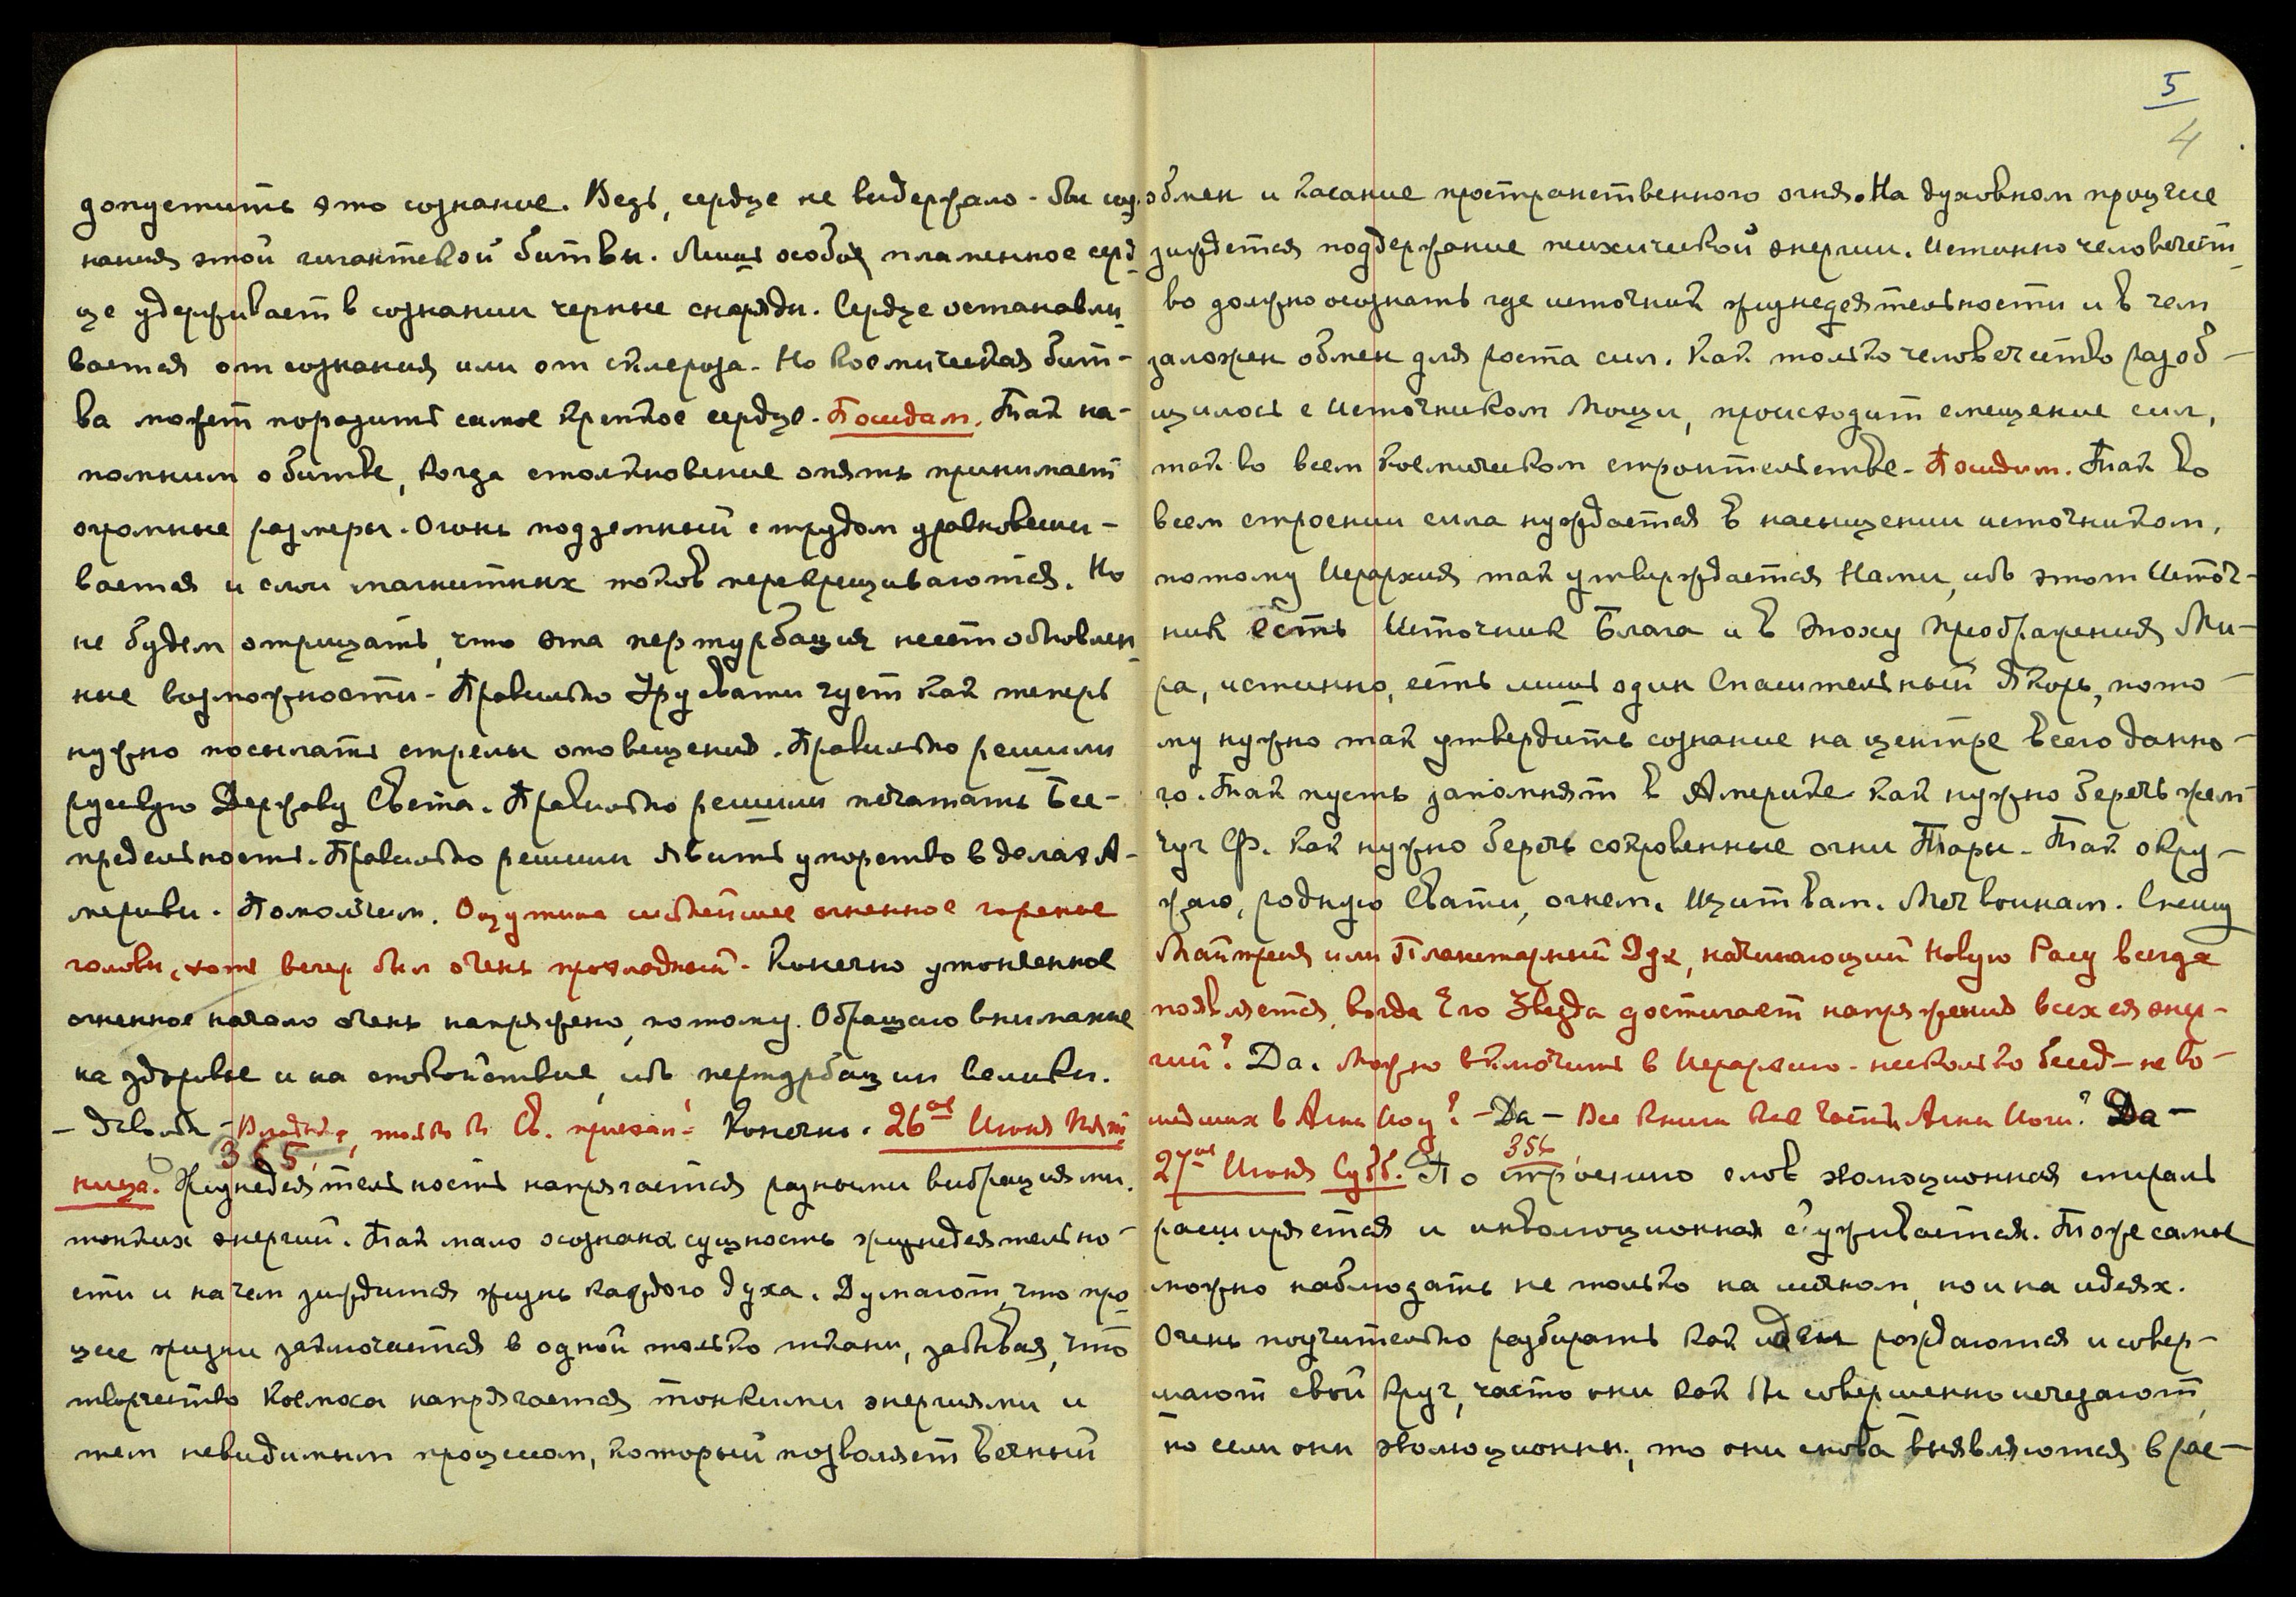 допустить это сознание. Ведь, сердце не выдержало-бы соз
нания этой гигантской битвы. Лишь особое пламенное серд
це удерживает в сознании черные снаряды. Сердце останавли
вается от сознания или от склероза. Но космическая бит-
ва может поразить самое крепкое сердце. Пошлем. Так на-
помним о битве, когда столкновение опять принимает
огромные размеры. Огонь подземный с трудом уравновеши-
вается и слои магнитных токов перекрещиваются. Но
не будем отрицать, что эта пертурбация несет обновлен
ные возможности. Правильно Урусвати чует как теперь
нужно посылать стрелы оповещения. Правильно решили
русскую Державу Света. Правильно решили печатать Бес-
предельность. Правильно решили явить упорство в делах А-
мерики. Помолчим. Ощутила сильнейшее огненное горение
головы, хотя вечер был очень прохладный. Конечно утонченное
огненное начало очень напряжено, потому. Обращаю внимание
на здоровье и на спокойствие, ибо пертурбации велики.
– Довольно – Владыка, только бы Св. приехал! Конечно. 26ое Июня Пят
365
ница. Жизнедеятельность напрягается разными вибрациями
тонких энергий. Так мало осознана сущность жизнедеятельно-
сти и на чем зиждится жизнь каждого духа. Думают, что про
цесс жизни заключается в одной только ткани, забывая, что
творчество Космоса напрягается тонкими энергиями и
тем невидимым процессом, который позволяет вечный
5
4
обмен и касание пространственного огня. На духовном процессе
зиждется поддержание психической энергии. Истинно человечест
во должно осознать где источник жизнедеятельности и в чем
заложен обмен для роста сил. Как только человечество разоб-
щилось с Источником Мощи, происходит смещение сил,
так во всем космическом строительстве. Пошлем. Так во
всем строении сила нуждается в насыщении источником,
потому Иерархия так утверждается Нами, ибо этот Источ-
ник есть Источник Блага и в эпоху преображения Ми-
ра, истинно, есть лишь один Спасительный Якорь, пото-
му нужно так утвердить сознание на центре всего данно-
го. Так пусть запомнят в Америке как нужно беречь жем
чуг Ф. как нужно беречь сокровенные огни Тары. Так окру-
жаю, родную Свати, огнем. Щит вам. Меч воинам. Спешу
Майтрейя или Планетарный Дух, начинающий Новую Расу всегда
появляется, когда Его Звезда достигает напряжения всех ея энер-
гий? Да. Можно включить в Иерархию несколько бесед – не во-
шедших в Агни Йогу? – Да – Все книги все часть Агни Йоги? Да –
354
27ое Июня Субб. По строению слов эволюционная спираль
расширяется и инволюционная суживается. Тоже самое
можно наблюдать не только на личном, но и на идеях.
Очень поучительно разбирать как идеи рождаются и совер-
шают свой круг, часто они как бы совершенно исчезают,
но если они эволюционны, то они снова выявляются в рас-